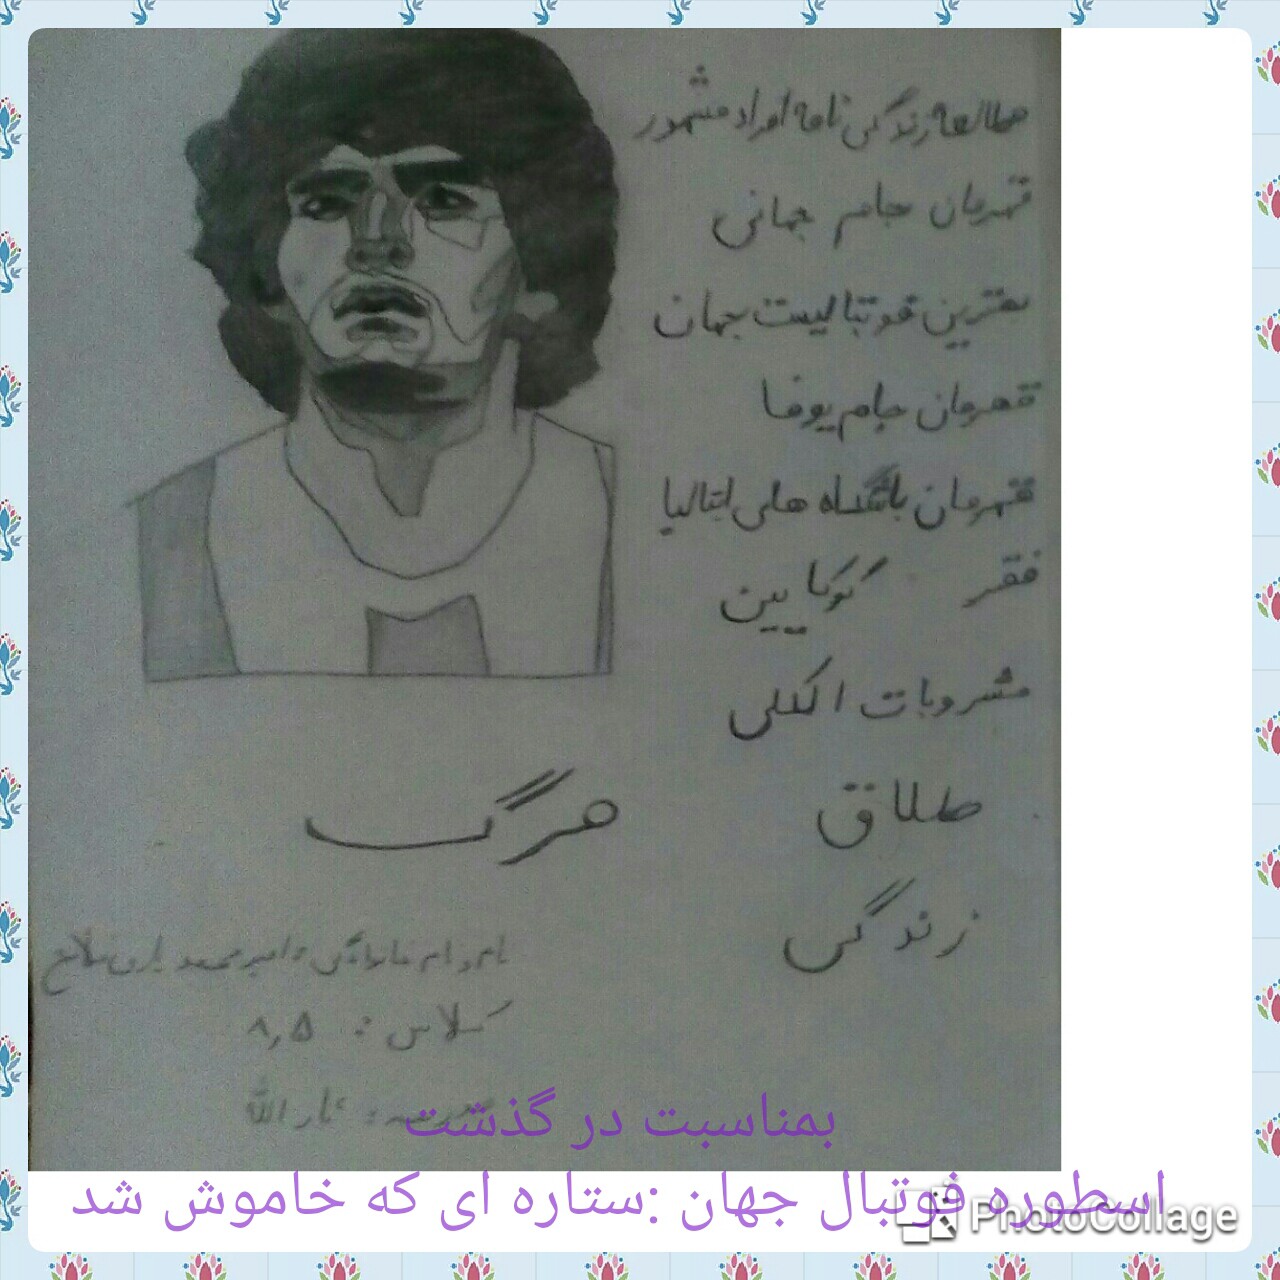 مطالعه زندگی نامه افراد مشهور
قهرمان جام جهانی
بهترین فوتبالیست جهان
قهرمان جام یوفا
قهرمان باشگاه های ایتالیا
فقر کوکایین
مشروبات الکلی
طلاق
مرگ
زندگی
نام و نام خانوادگی: امیرمحمد
کلاس: ۸٫۵
مدرسه: ثارالله
بمناسبت در گذشت
اسطوره فوتبال جهان :ستاره ای که خاموش شد
PhotoCollage